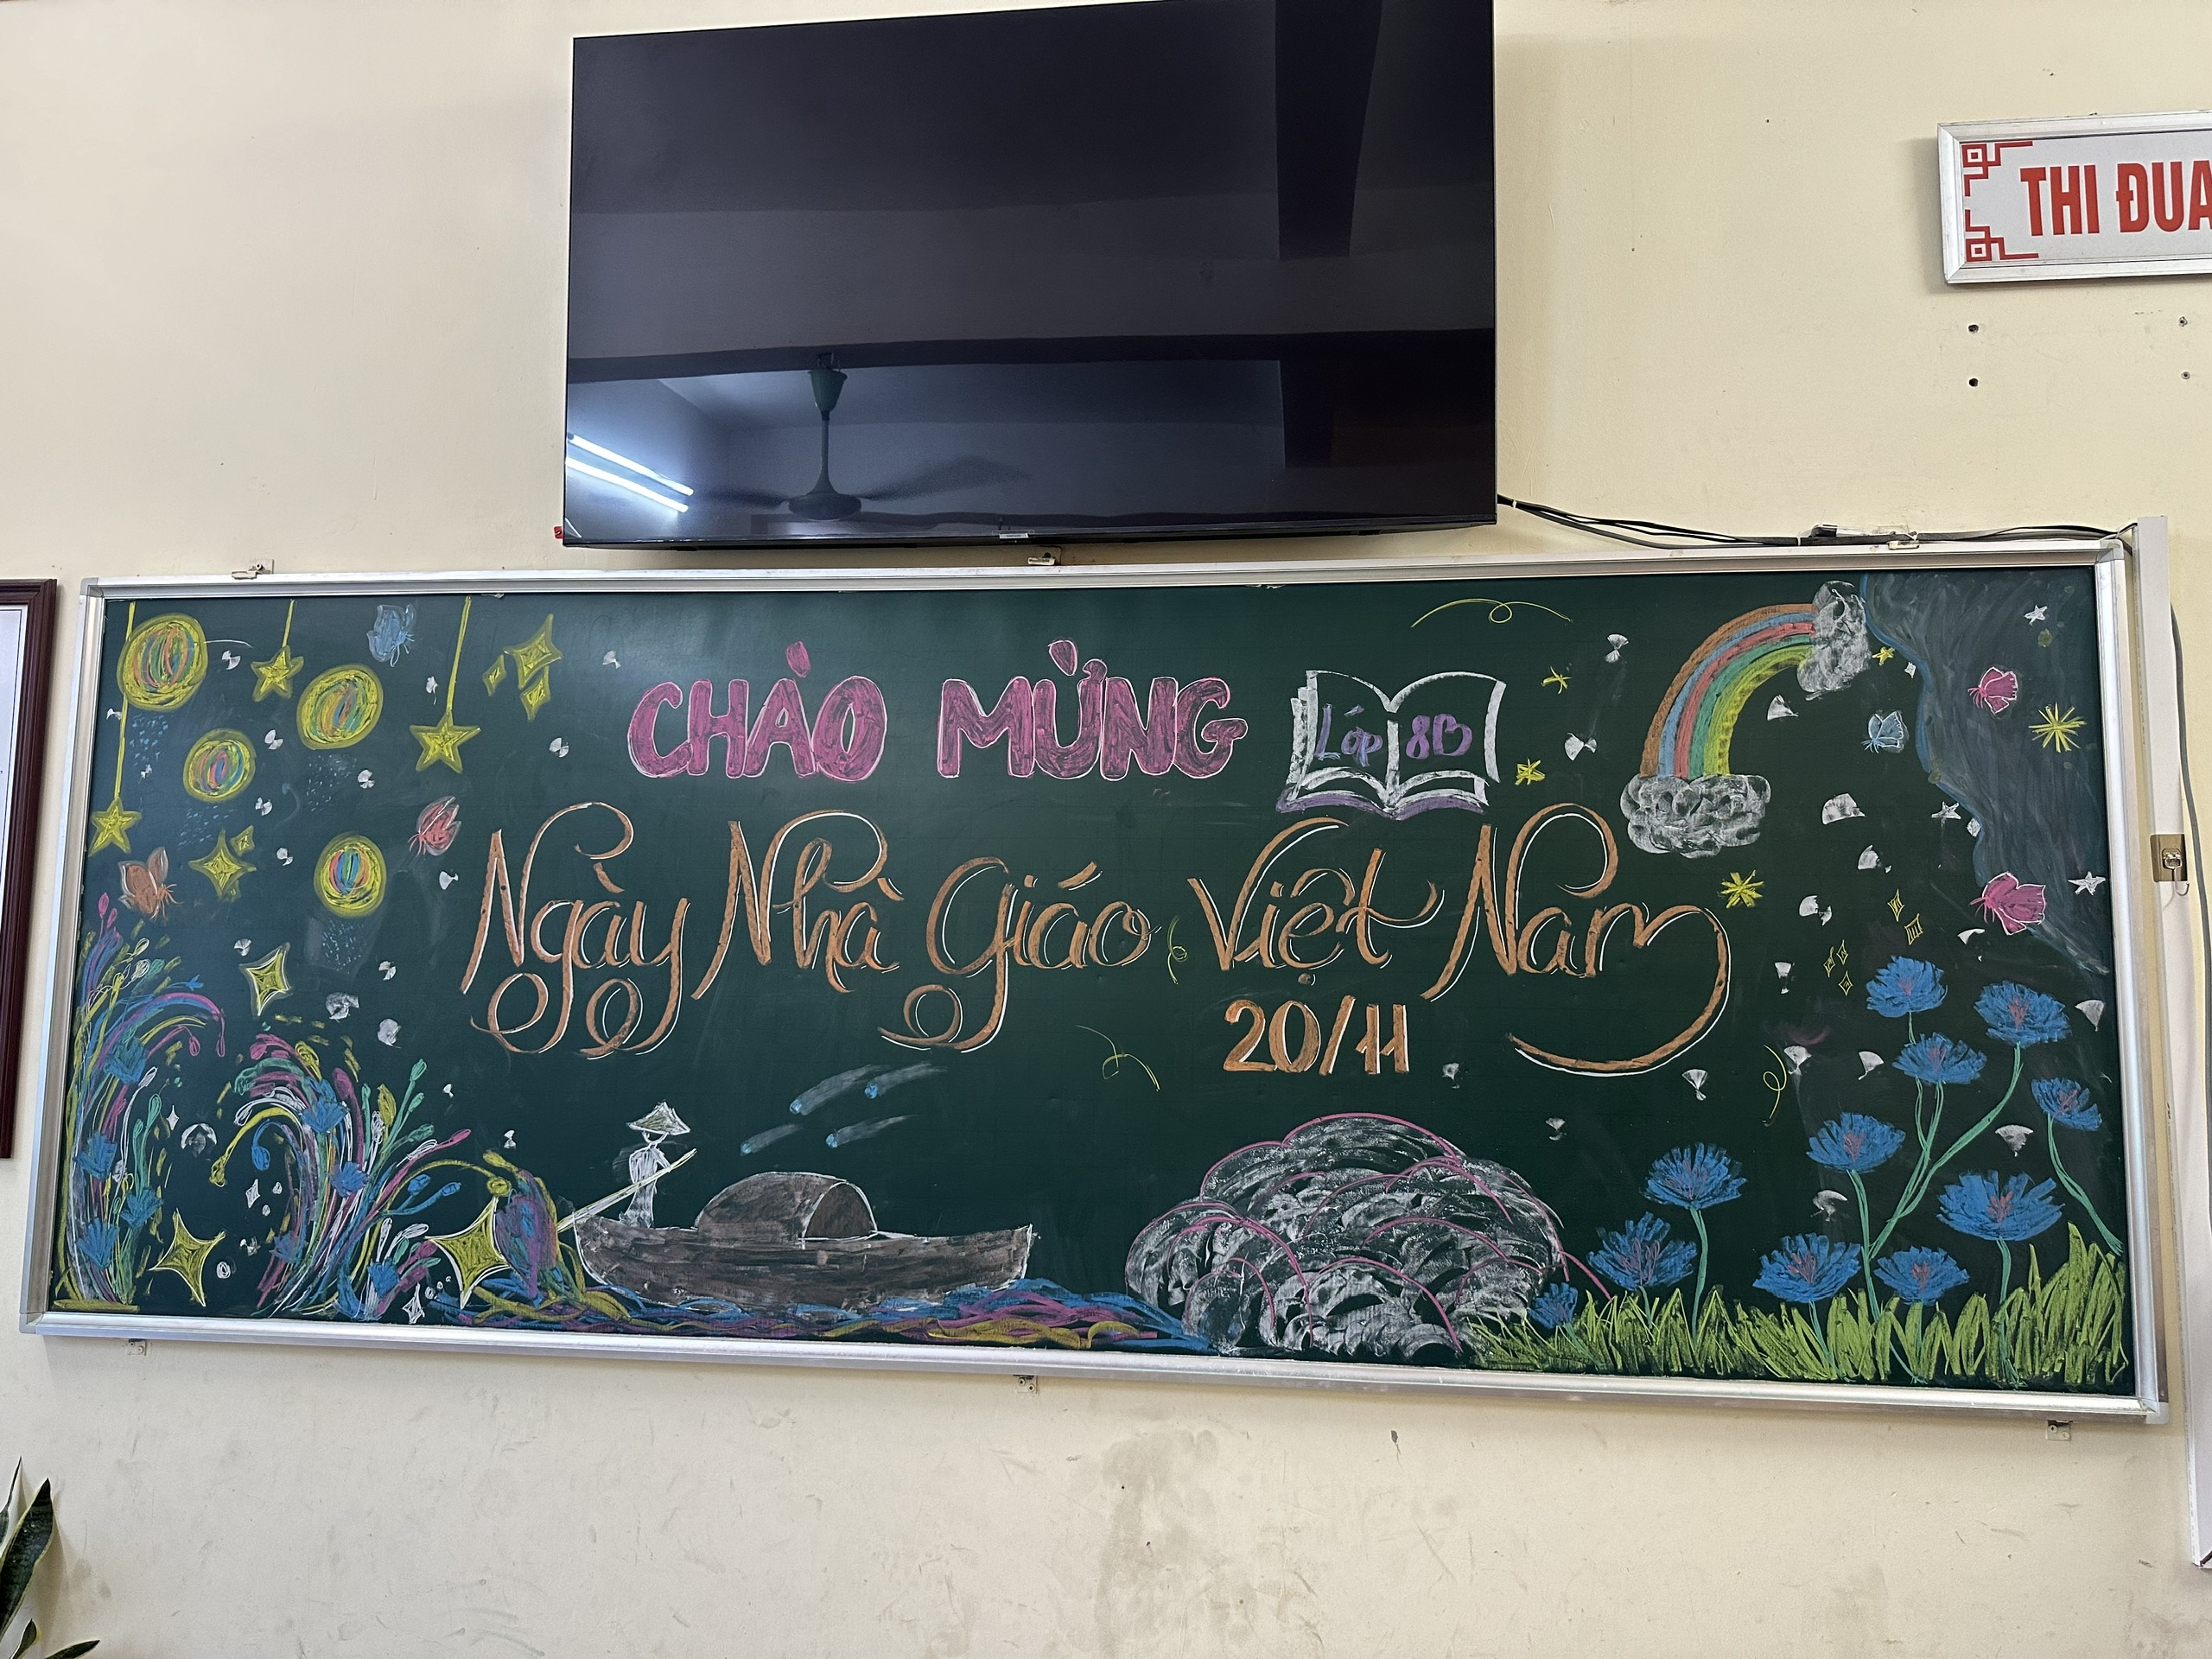 THI ĐUA
CHÀO MỪNG
Lớp 8B
Ngày Nhà Giáo Việt Nam
20/11